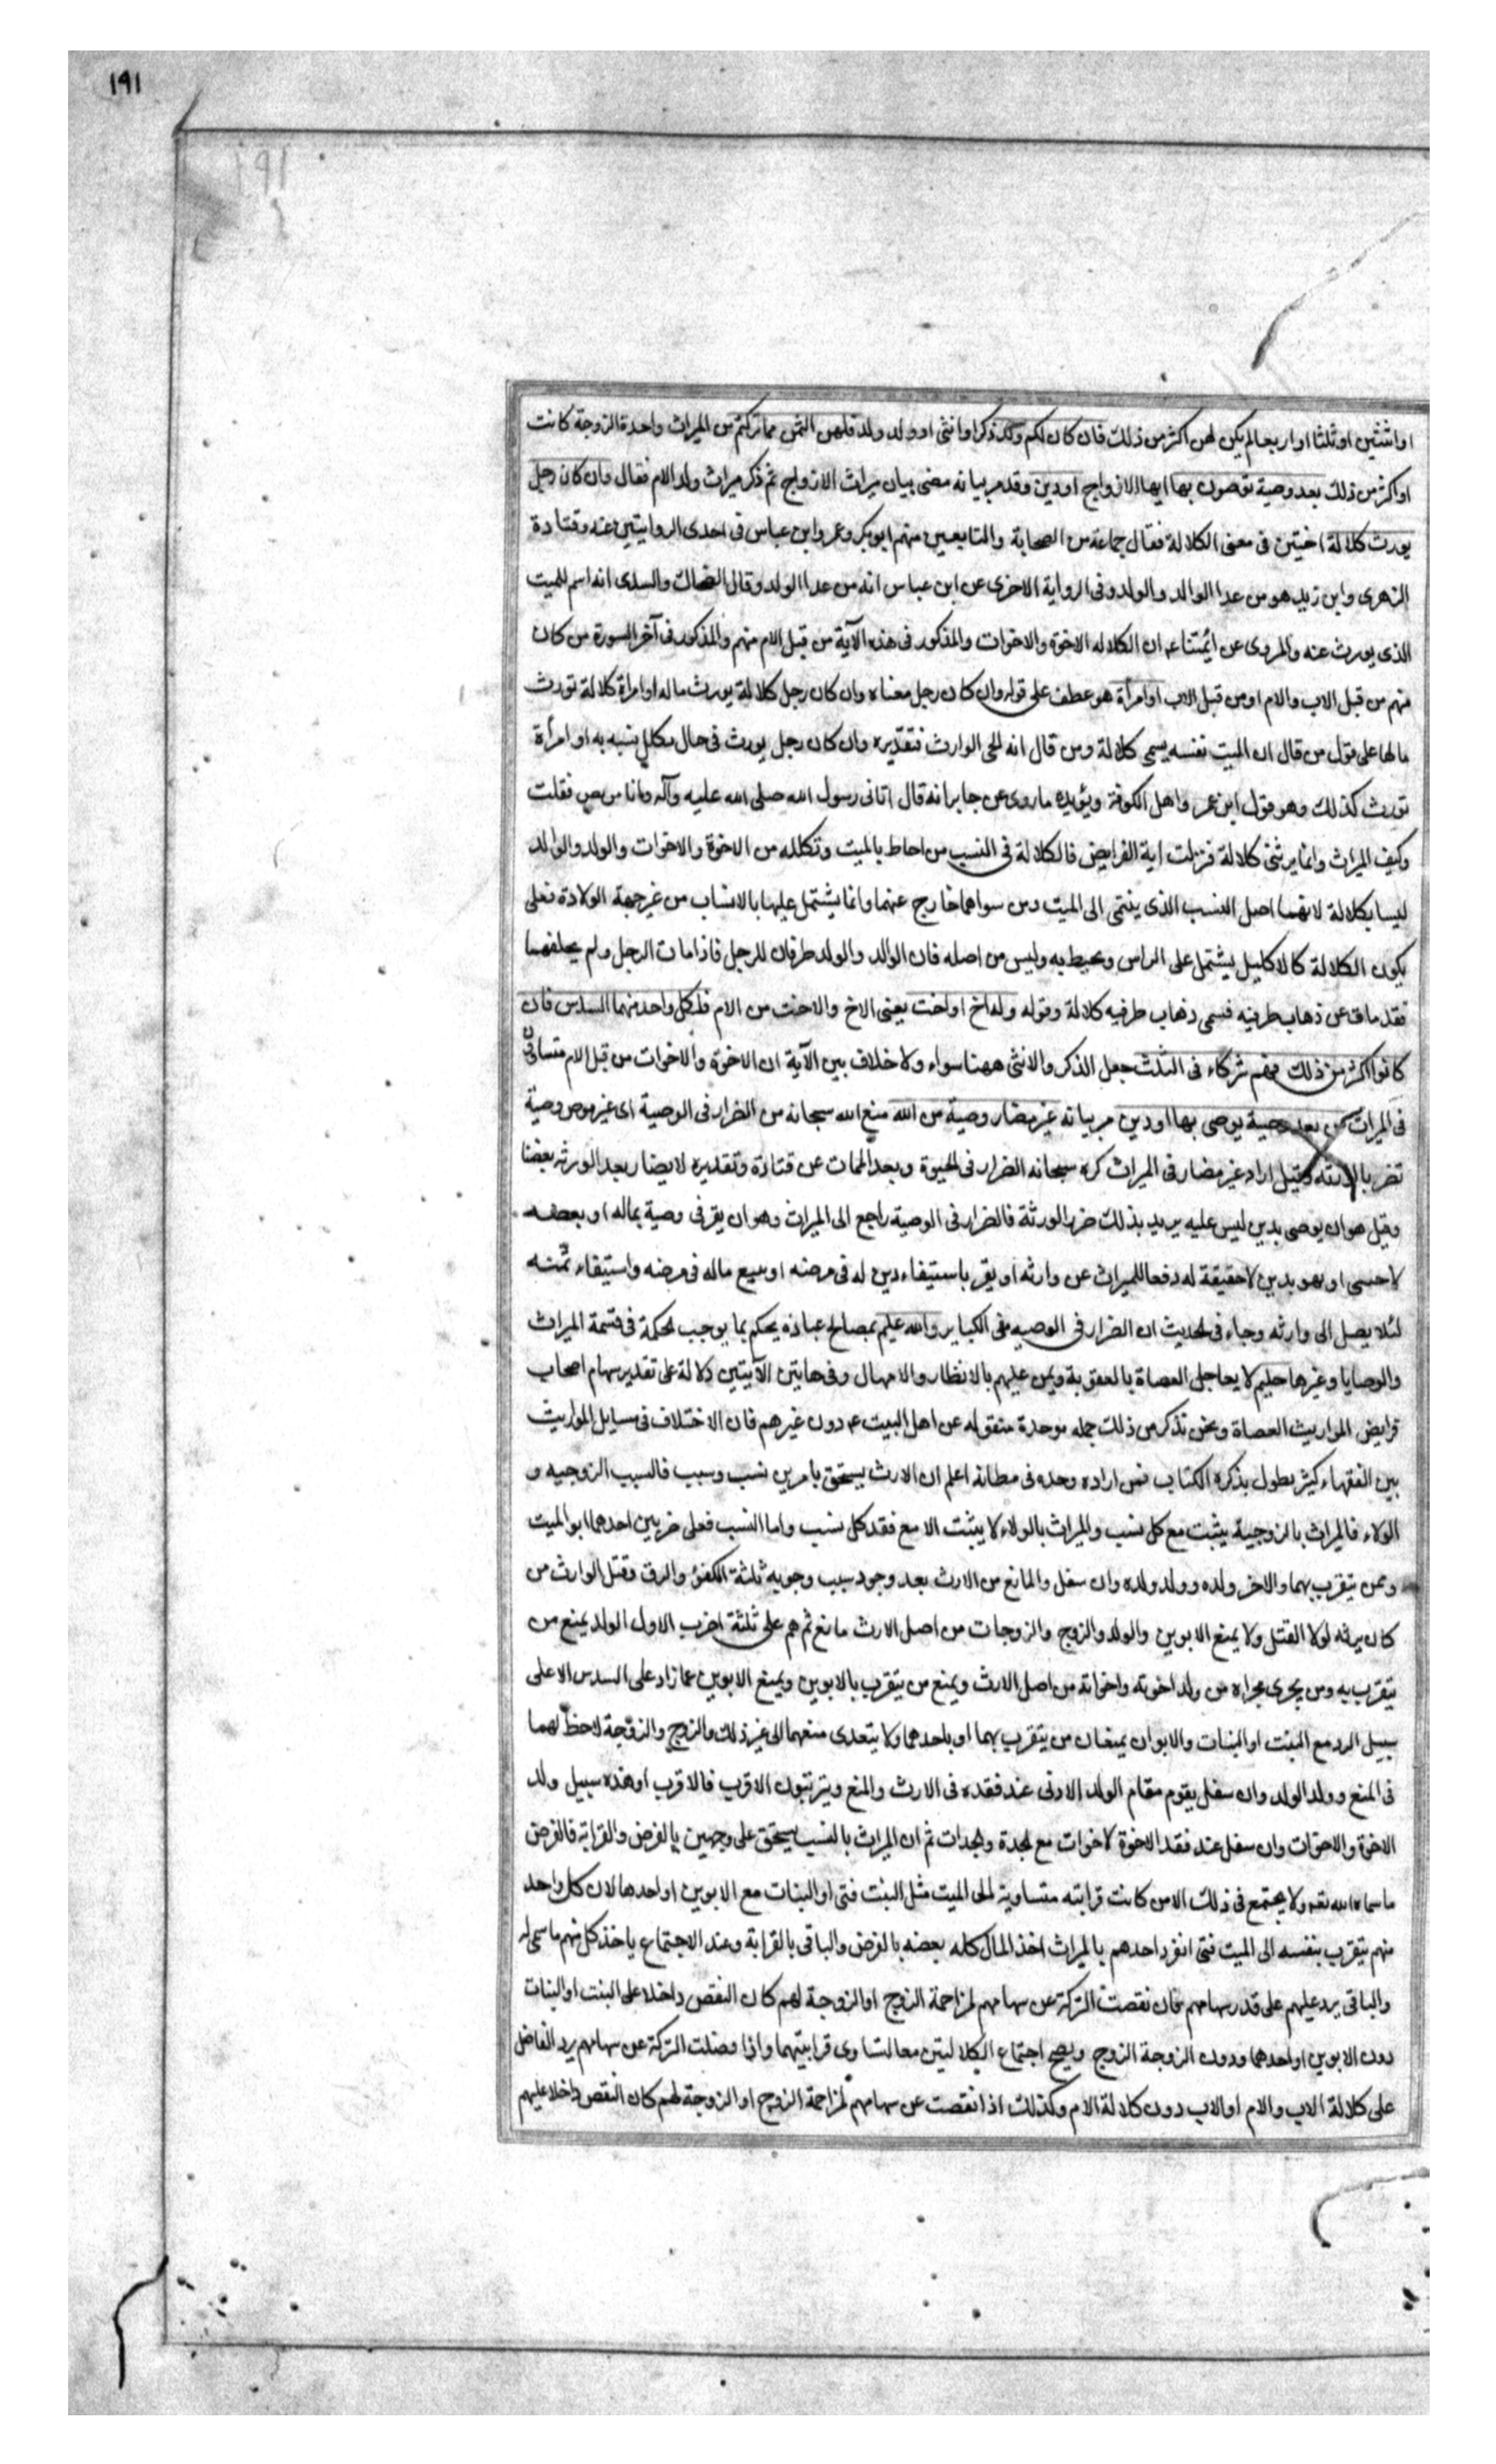 ١٩١
او اثنتين او ثلثا او اربعا لم يكن لهن اكثر من ذلك فان كان لكم ولد ذكرا وانثى او ولد ولد فلهن الثمن مما تركتم من الميراث واحدة الزوجة كانت
او اكثر من ذلك بعد وصية توصون بها ايها الازواج او دين وقد مر بيانه مضى بيان ميراث الازواج ثم ذكر ميراث ولد الام فقال وان كان رجل
يورث كلالة اختين فى معنى الكلالة فقال جماعة من الصحابة والتابعين منهم ابوبكر وعمر وابن عباس فى احدى الروايتين عنه وقتادة
الزهرى وابن زيد هو من عدا الوالد والولد وفى الرواية الاخرى عن ابن عباس انه من عدا الولد وقال الضحاك والسدى انه اسم للميت
الذى يورث عنه والمروى عن ائمتناع ان الكلاله الاخوة والاخوات والمذكور فى هذه الآية من قبل الام منهم والمذكور فى آخر السورة من كان
منهم من قبل الاب والام او من قبل الاب او امرأة هو عطف على قوله وان كان رجل معناه وان كان رجل كلالة يورث ماله او امراة كلالة تورث
مالها على قول من قال ان الميت نفسه يسمى كلالة ومن قال انه الحى الوارث فتقديره وان كان رجل يورث فى حال تكلل نسبه به او امرأة
تورث كذلك وهو قول ابن عمر واهل الكوفة ويؤيده ما روى عن جابر انه قال اتانى رسول الله صلى الله عليه وآله وانا مريض فقلت
وكيف الميراث وانما يرثنى كلالة فنزلت اية الفرايض فالكلالة فى النسب من احاط بالميت وتكلله من الاخوة والاخوات والولد والوالد
ليسا بكلالة لانهما اصل النسب الذى ينتمى الى الميت ومن سواهما خارج عنهما وانما يشتمل عليها بالانساب من غير جهة الولادة فعلى
يكون الكلالة كالاكليل يشتمل على الراس ويحيط به وليس من اصله فان الوالد والولد طرفان للرجل فاذا مات الرجل ولم يخلفهما
فقد مات عن ذهاب طرفيه فسمى ذهاب طرفيه كلالة وقوله وله اخ او اخت يعنى الاخ والاخت من الام فلكل واحد منهما السدس فان
كانوا اكثر من ذلك فهم شركاء فى الثلث جعل الذكر والانثى ههنا سواء ولا خلاف بين الآية ان الاخوة والاخوات من قبل الام متساوون
فى الميراث من بعد وصية يوصى بها او دين مر بيانه غير مضار وصية من الله منع الله سبحانه من الضرار فى الوصية اى غير موص وصية
تضر بالورثة وقيل اراد غير مضار فى الميراث كره سبحانه الضرار فى الحيوة وبعد الممات عن قتادة وتقديره لا يضار بعد الورثه بعضا
وقيل هو ان يوصى بدين ليس عليه يريد بذلك ضرر الورثة فالضرار فى الوصية راجع الى الميراث وهو ان يقر فى وصية بماله او بعضه
لاجنبى او بدين لا حقيقة له دفعا للميراث عن وارثه او يقر باستيفاء دين له فى مرضه او بيع ماله فى مرضه واستيفاء ثمنه
لئلا يصل الى وارثه وجاء فى الحديث ان الضرار فى الوصيه من الكباير والله عليم بمصالح عباده يحكم بما يوجب الحكمة فى قسمة الميراث
والوصايا وغيرها حليم لا يعاجل العصاة بالعقوبة ويمن عليهم بالانظار والامهال وفى هاتين الآيتين دلالة على تقدير سهام اصحاب
فرايض المواريث العصاة ونحن نذكر من ذلك جمله موحدة منقوله عن اهل البيت ع دون غيرهم فان الاختلاف فى مسايل المواريث
بين الفقهاء كثير يطول بذكره الكتاب فمن اراده وحده فى مظانه اعلم ان الارث يستحق بامرين نسب وسبب فالسبب الزوجيه و
الولاء فالميراث بالزوجية يثبت مع كل نسب والميراث بالولاء لا يثبت الا مع فقد كل نسب واما النسب فعلى ضربين احدهما ابو الميت
ومن يتقرب بهما والاخر ولده وولد ولده وان سفل والمانع من الارث بعد وجود سبب وجوبه ثلثة الكفر والرق وقتل الوارث من
كان يرثه لولا القتل ولا يمنع الابوين والولد والزوج والزوجات من اصل الارث مانع ثم هم على ثلثة اضرب الاول الولد يمنع من
يتقرب به ومن يجرى مجراه من ولد اخوته واخواته من اصل الارث ويمنع من يتقرب بالابوين ويمنع الابوين عما زاد على السدس الا على
سبيل الرد مع البنت او البنات والابوان يمنعان من يتقرب بهما او باحدهما ولا يتعدى منعهما الى غير ذلك والزوج والزوجة لا حظ لهما
فى المنع وولد الولد وان سفل يقوم مقام الولد الادنى عند فقده فى الارث والمنع ويترتبون الاقرب فالاقرب او هذه سبيل ولد
الاخوة والاخوات وان سفل عند فقد الاخوة لاخوات مع الجدة والجدات ثم ان الميراث بالنسب يستحق على وجهين بالفرض والقرابة فالفرض
ما سماه الله تعه ولا يجتمع فى ذلك الا من كانت قرابته متساوية الى الميت مثل البنت فتى او البنات مع الابوين او احدهما لان كل واحد
منهم يتقرب بنفسه الى الميت فتى انفرد احدهم بالميراث اخذ المال كله بعضه بالفرض والباقى بالقرابة وعند الاجتماع ياخذ كل منهم ما سمى له
والباقى يرد عليهم على قدر سهامهم فان نقصت التركة عن سهامهم لمزاحمة الزوج او الزوجة لهم كان النقص داخلا على البنت او البنات
دون الابوين او احدهما ودون الزوجة الزوج ويصح اجتماع الكلالتين معا لتساوى قرابتيهما واذا فضلت التركة عن سهامهم يرد الفاضل
على كلالة الاب والام او الاب دون كلالة الام وكذلك اذا نقصت عن سهامهم لمزاحمة الزوج او الزوجة لهم كان النقص داخلا عليهم